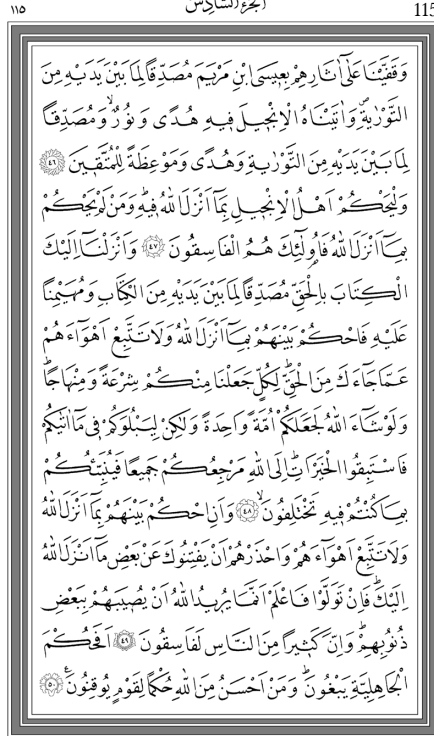 ١١٥ الجزء السادس 115
وَقَفَّيْنَا عَلٰٓى اٰثَارِهِمْ بِعِيسَى ابْنِ مَرْيَمَ مُصَدِّقًا لِمَا بَيْنَ يَدَيْهِ مِنَ
التَّوْرٰيةِۖ وَاٰتَيْنَاهُ الْاِنْجِيلَ فِيهِ هُدًى وَنُورٌۙ وَمُصَدِّقًا
لِمَا بَيْنَ يَدَيْهِ مِنَ التَّوْرٰيةِ وَهُدًى وَمَوْعِظَةً لِلْمُتَّقِينَ ﴿٤٦﴾
وَلْيَحْكُمْ اَهْلُ الْاِنْجِيلِ بِمَٓا اَنْزَلَ اللّٰهُ فِيهِۜ وَمَنْ لَمْ يَحْكُمْ
بِمَٓا اَنْزَلَ اللّٰهُ فَاُو۬لٰٓئِكَ هُمُ الْفَاسِقُونَ ﴿٤٧﴾ وَاَنْزَلْنَٓا اِلَيْكَ
الْكِتَابَ بِالْحَقِّ مُصَدِّقًا لِمَا بَيْنَ يَدَيْهِ مِنَ الْكِتَابِ وَمُهَيْمِنًا
عَلَيْهِ فَاحْكُمْ بَيْنَهُمْ بِمَٓا اَنْزَلَ اللّٰهُ وَلَا تَتَّبِعْ اَهْوَٓاءَهُمْ
عَمَّا جَٓاءَكَ مِنَ الْحَقِّۜ لِكُلٍّ جَعَلْنَا مِنْكُمْ شِرْعَةً وَمِنْهَاجًاۜ
وَلَوْ شَٓاءَ اللّٰهُ لَجَعَلَكُمْ اُمَّةً وَاحِدَةً وَلٰكِنْ لِيَبْلُوَكُمْ فِي مَٓا اٰتٰيكُمْ
فَاسْتَبِقُوا الْخَيْرَاتِۜ اِلَى اللّٰهِ مَرْجِعُكُمْ جَمِيعًا فَيُنَبِّئُكُمْ
بِمَا كُنْتُمْ فِيهِ تَخْتَلِفُونَۙ ﴿٤٨﴾ وَاَنِ احْكُمْ بَيْنَهُمْ بِمَٓا اَنْزَلَ اللّٰهُ
وَلَا تَتَّبِعْ اَهْوَٓاءَهُمْ وَاحْذَرْهُمْ اَنْ يَفْتِنُوكَ عَنْ بَعْضِ مَٓا اَنْزَلَ اللّٰهُ
اِلَيْكَۜ فَاِنْ تَوَلَّوْا فَاعْلَمْ اَنَّمَا يُرِيدُ اللّٰهُ اَنْ يُصِيبَهُمْ بِبَعْضِ
ذُنُوبِهِمْۜ وَاِنَّ كَثِيرًا مِنَ النَّاسِ لَفَاسِقُونَ ﴿٤٩﴾ اَفَحُكْمَ
الْجَاهِلِيَّةِ يَبْغُونَۜ وَمَنْ اَحْسَنُ مِنَ اللّٰهِ حُكْمًا لِقَوْمٍ يُوقِنُونَ۟ ﴿٥٠﴾